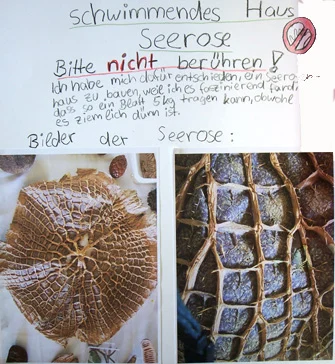 schwimmendes Haus
Seerose
Bitte nicht berühren!
Ich habe mich dafür entschieden, ein Seeros
haus zu bauen, weil ich es faszinierend fand,
dass so ein Blatt 5kg tragen kann, obwohl
es ziemlich dünn ist.
Bilder der Seerose: